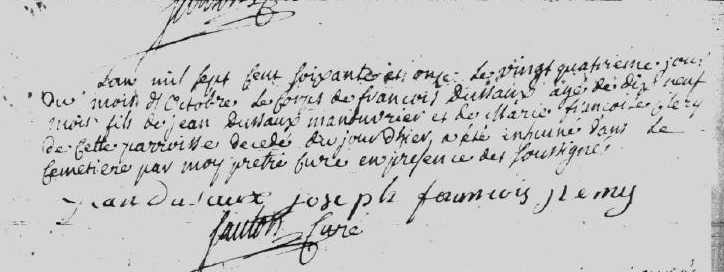 Lan mil sept cent soixante et onze le vingt quatrieme jour
du mois d'Octobre le corps de francois Dussaux agé de dix neuf
mois fils de jean Dussaux manouvrier et de Marie francoise
de cette parroisse decedé du jour dhier a été inhumé dans le
cemetiere par moy pretre curé en presence des soussignés
jean Dusaux joseph
Curé